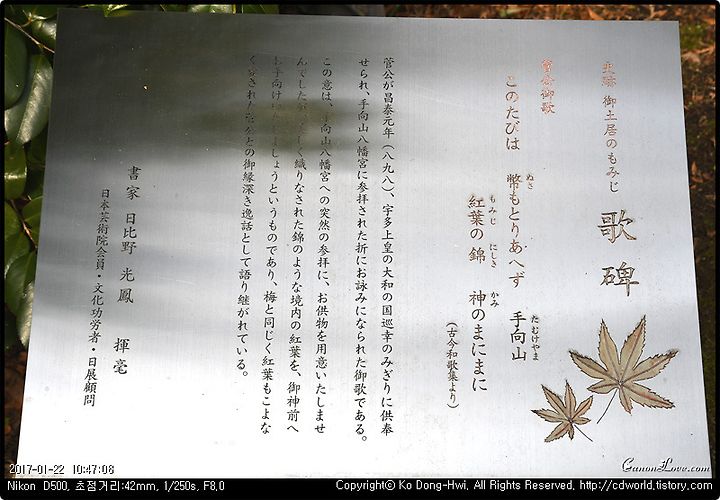 史跡 御土居のもみじ 歌碑
菅公御歌
このたびは 幣もとりあへず 手向山
ぬさ
たむけやま
紅葉の錦 神のまにまに
もみじ
にしき
かみ
(古今和歌集より)
菅公が昌泰元年(八九八)、宇多上皇の大和の国巡幸のみぎりに供奉
せられ、手向山八幡宮に参拝された折にお詠みになられた御歌である。
この意は、手向山八幡宮への突然の参拝に、お供物を用意いたしませ
んでしたが、美しく織りなされた錦のような境内の紅葉を、御神前へ
お手向けいたしましょうというものであり、梅と同じく紅葉もこよな
く愛された菅公との御縁深き逸話として語り継がれている。
書家 日比野 光鳳 揮毫
日本芸術院会員・文化功労者・日展顧問
CanonLove.com
2017-01-22 10:47:06
Nikon D500, 초점거리:42mm, 1/250s, F8.0
Copyright© Ko Dong-Hwi, All Rights Reserved, http://cdworld.tistory.com